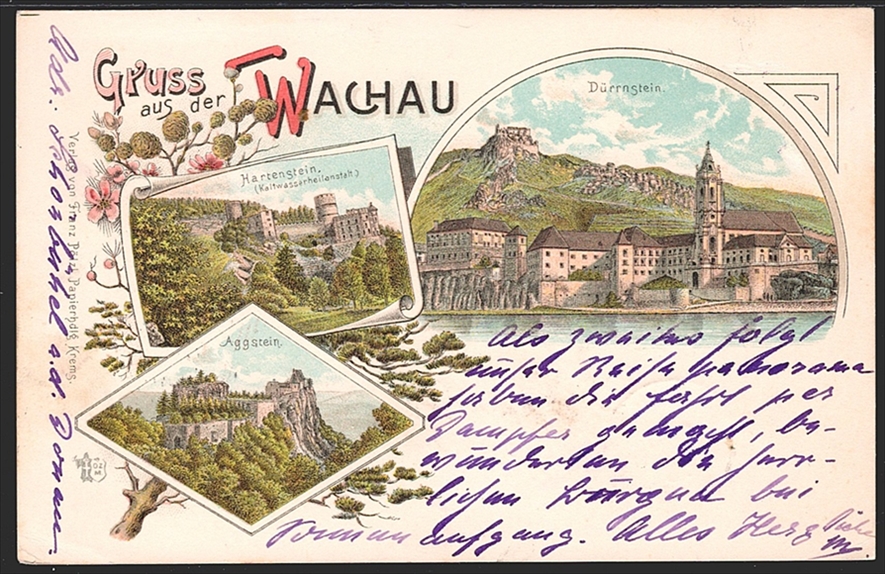 Gruss
aus der
WACHAU
Dürrnstein.
Hartenstein.
(Kaltwasserheilanstalt)
Aggstein.
Verlag von Franz Pätzk Papierhdlg Krems.
Als zweites folgt
unser Reisepanorama
haben die fahrt per
Dampfer gemacht, be-
wunderten die herr-
lichen Burgen bei
Sonnenaufgang. Alles Herz
a.d. Donau.